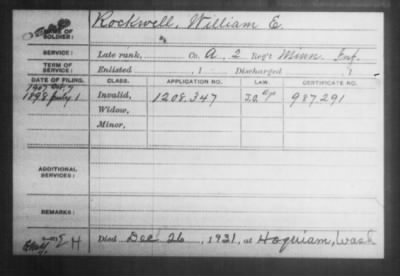 NAME OF SOLDIER: Rockwell, William E.
SERVICE: Late rank, Co. A, 2 Reg't Minn. Inf.
TERM OF SERVICE: Enlisted 1 Discharged 1
DATE OF FILING. CLASS. APPLICATION NO. LAW. CERTIFICATE NO.
1898 July 1 Invalid, 1208.347 987291
Widow,
Minor,
ADDITIONAL SERVICES:
REMARKS:
Died Dec 26, 1921, at Hoquiam, Wash